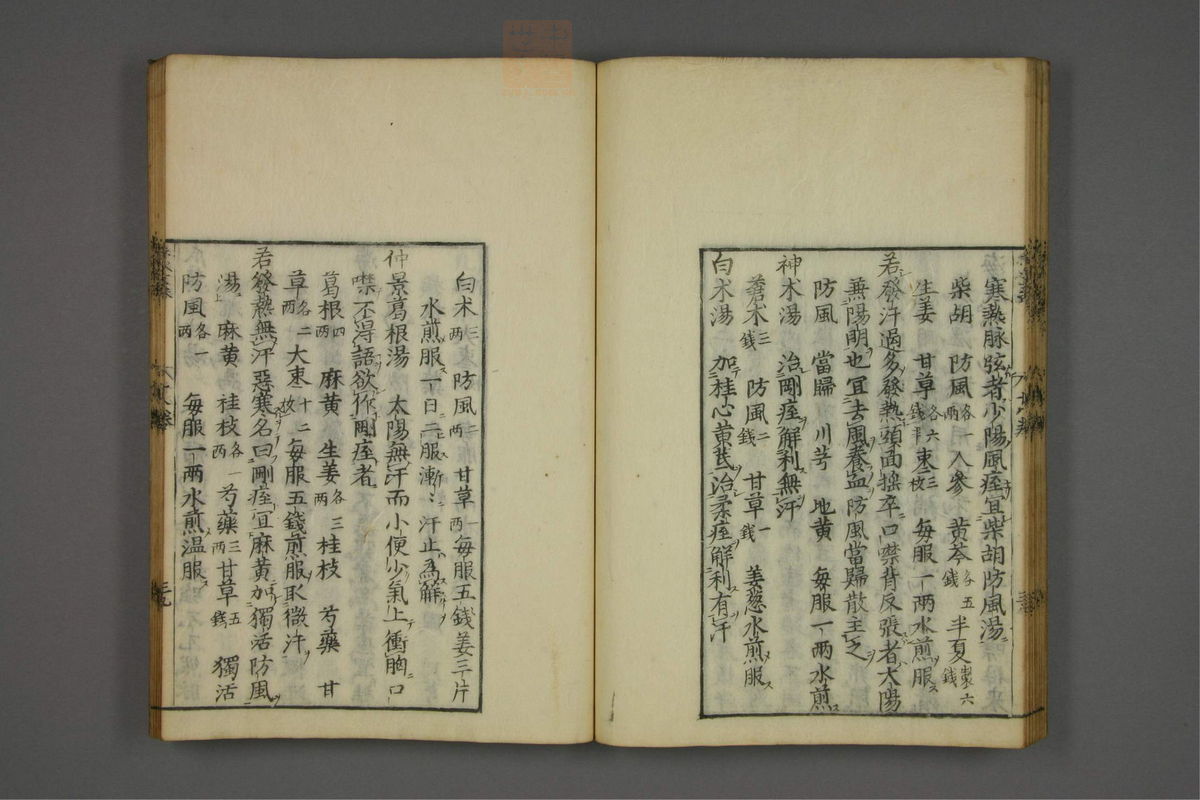 寒熱脉弦者少陽風痓宜柴胡防風湯
柴胡 防風各一兩 人参 黄芩各五錢 半夏製六錢
生姜 甘草各六錢半 棗三枚 毎服一兩水煎服
若發汗過多發熱頭面揺卒口噤背反張者太陽
兼陽明也宜去風養血防風當歸散主之
防風 當歸 川芎 地黄 毎服一兩水煎
神术湯 治剛痓解利無汗
蒼术三錢 防風二錢 甘草一錢 姜葱水煎服
白术湯 加桂心黄芪治柔痓解利有汗
白术三兩 防風二兩 甘草一兩 毎服五錢姜三片
水煎服一日二服漸々汗止為解
仲景葛根湯 太陽無汗而小便少氣上衝胸口
噤不得語欲作剛痓者
葛根四兩 麻黄 生姜各三兩 桂枝 芍藥 甘
草各二兩 大棗十二枚 毎服五錢煎服取微汗
若發熱無汗惡寒名曰剛痓宜麻黄加獨活防風
湯 麻黄 桂枝各一兩 芍藥三兩 甘草五錢 獨活
防風各一兩 毎服一兩水煎温服